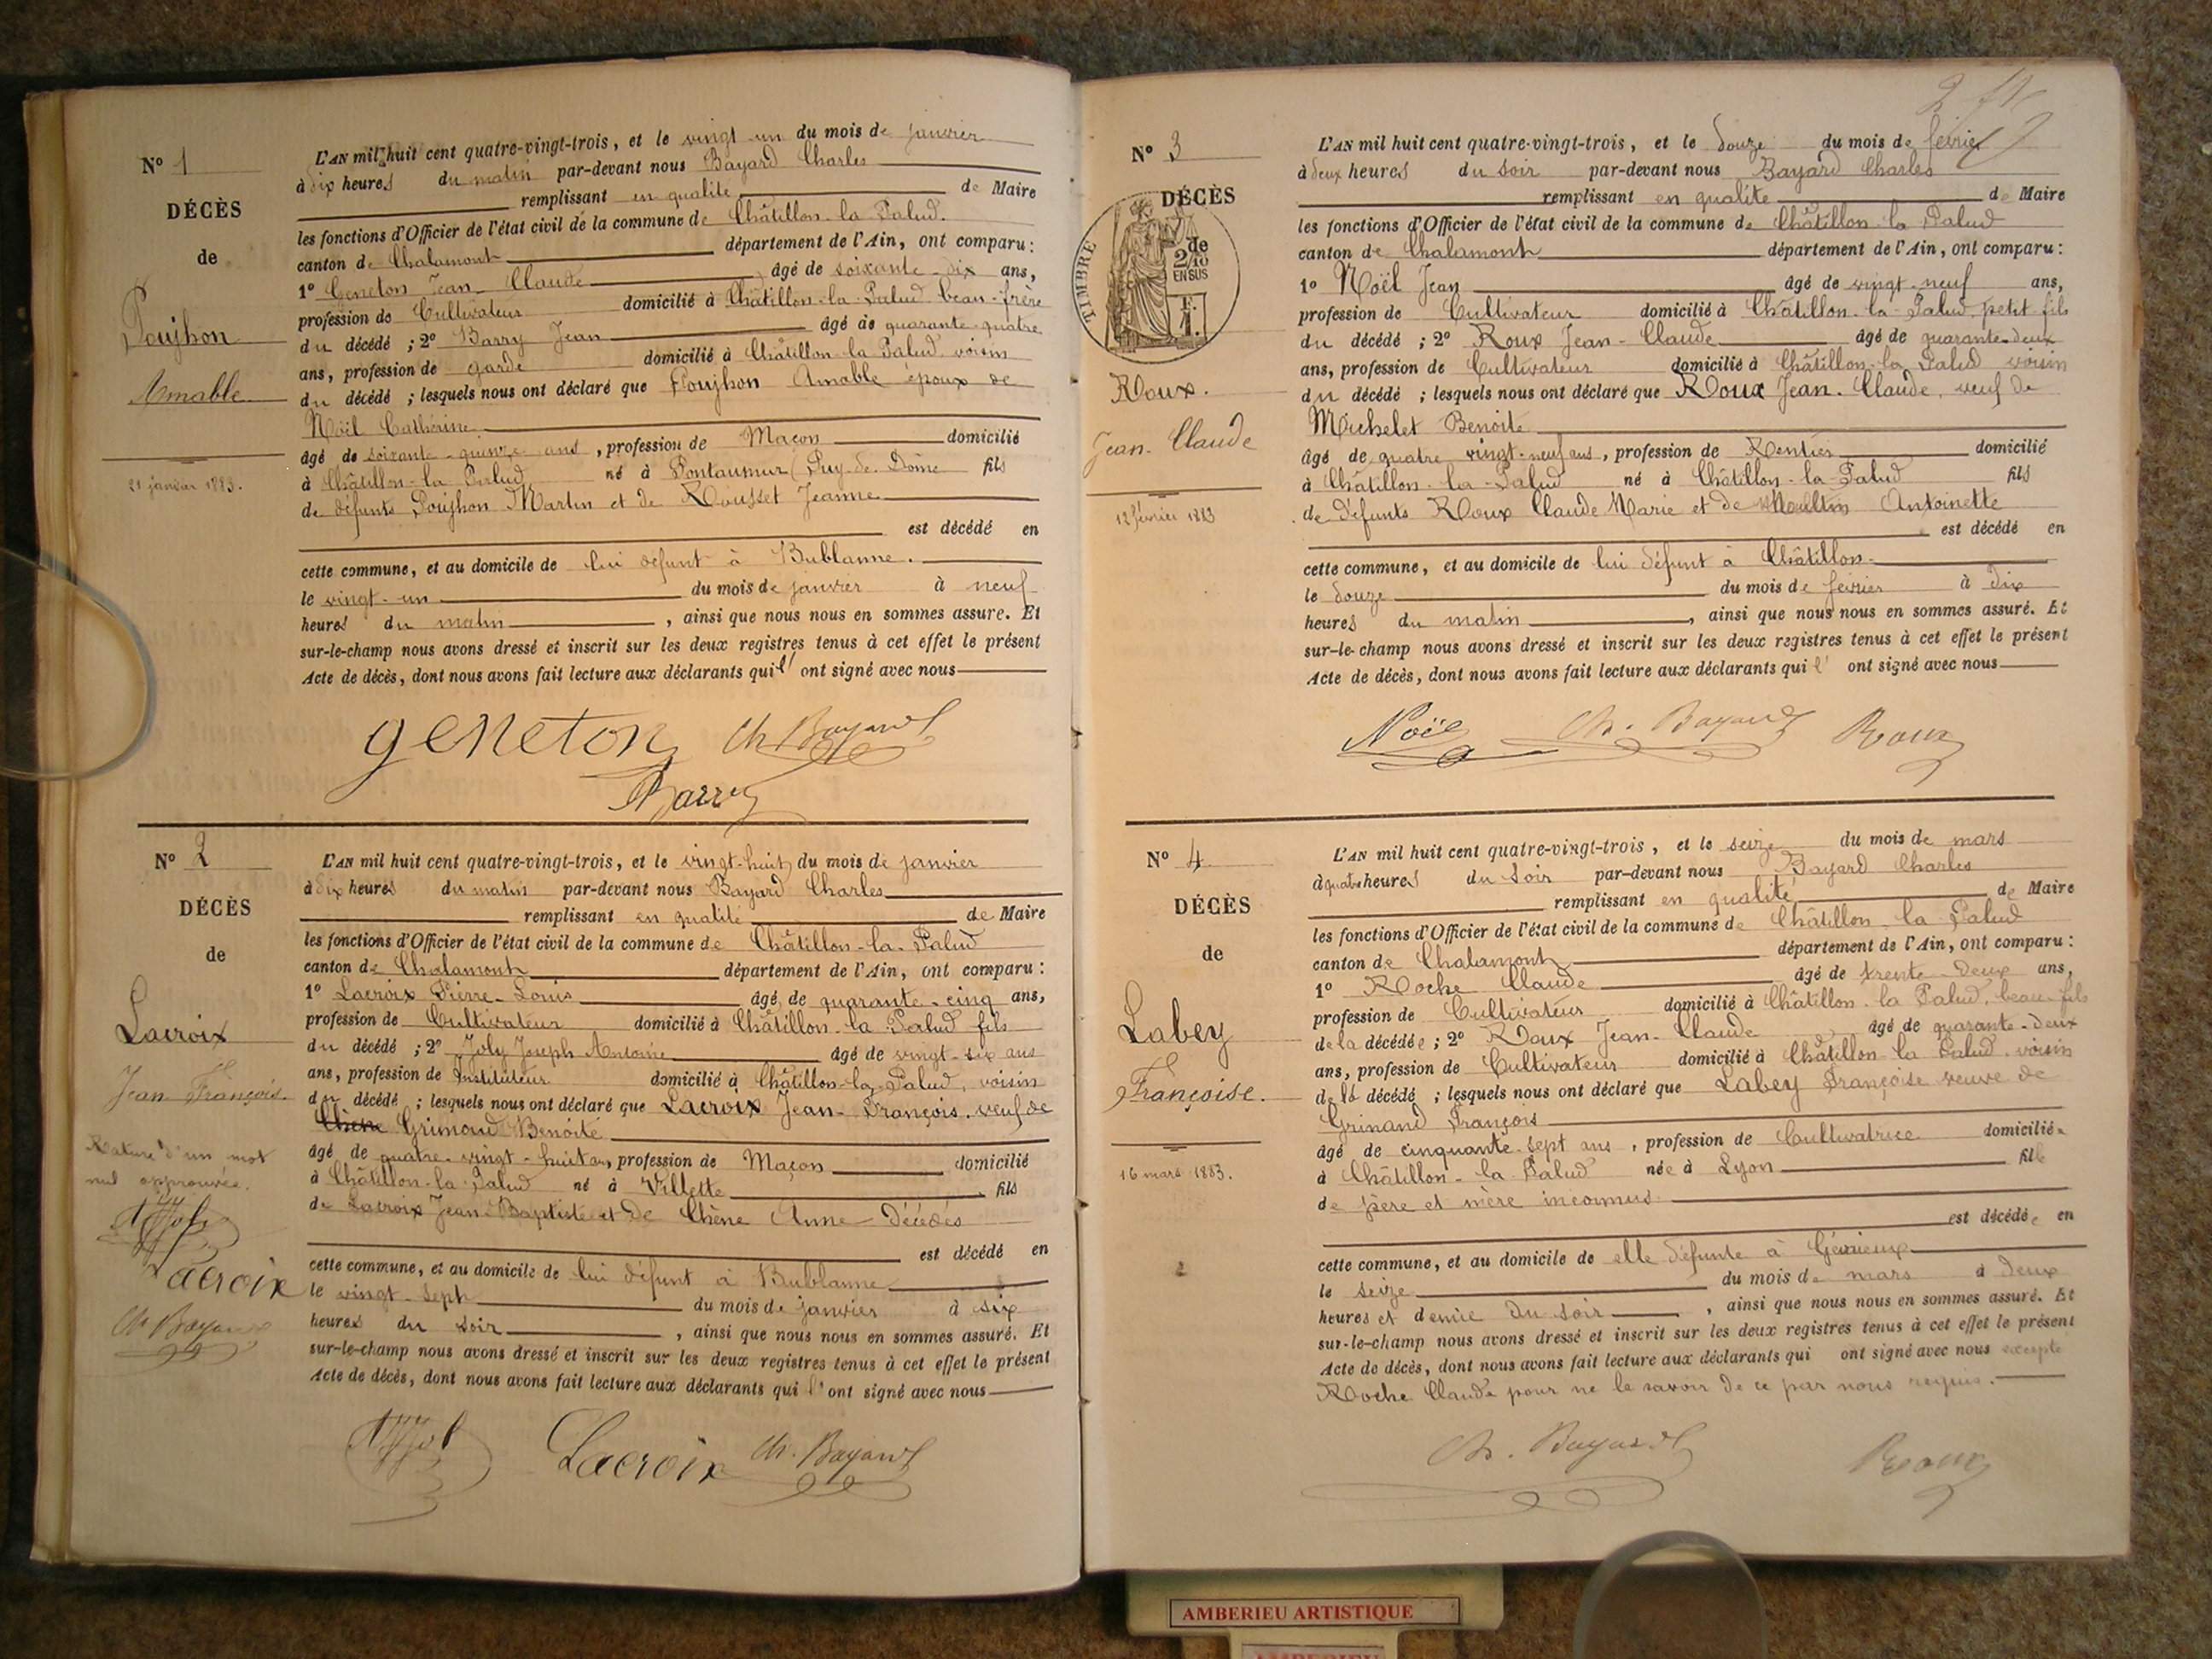 N° 1
DÉCÈS
de
Poujhon
Amable
21 janvier 1883.
L'AN mil huit cent quatre-vingt-trois, et le vingt un du mois de janvier
à dix heures du matin par-devant nous Bayard Charles
remplissant en qualité de Maire
les fonctions d'Officier de l'état civil de la commune de Châtillon-la-Palud.
canton de Chalamont département de l'Ain, ont comparu :
1° Geneton Jean-Claude âgé de soixante-dix ans,
profession de Cultivateur domicilié à Châtillon-la-Palud beau-frère
du décédé ; 2° Barry Jean âgé de quarante-quatre
ans, profession de garde domicilié à Châtillon-la-Palud voisin
du décédé ; lesquels nous ont déclaré que Poujhon Amable époux de
Noël Catherine
âgé de soixante-quinze ans, profession de Maçon domicilié
à Châtillon-la-Palud né à Pontaumur (Puy-de-Dôme fils
de défunts Poujhon Martin et de Rousset Jeanne
est décédé en
cette commune, et au domicile de lui défunt à Bublanne.
le vingt-un du mois de janvier à neuf
heures du matin, ainsi que nous nous en sommes assuré. Et
sur-le-champ nous avons dressé et inscrit sur les deux registres tenus à cet effet le présent
Acte de décès, dont nous avons fait lecture aux déclarants qui l' ont signé avec nous
geneton Ch Bayard
Barry
N° 2
DÉCÈS
de
Lacroix
Jean François.
Rature d'un mot
nul approuvée.
Lacroix
Ch Bayard
L'AN mil huit cent quatre-vingt-trois, et le vingt-huit du mois de janvier
à dix heures du matin par-devant nous Bayard Charles
remplissant en qualité de Maire
les fonctions d'Officier de l'état civil de la commune de Châtillon-la-Palud
canton de Chalamont département de l'Ain, ont comparu :
1° Lacroix Pierre-Louis âgé de quarante-cinq ans,
profession de Cultivateur domicilié à Châtillon-la-Palud fils
du décédé ; 2° Joly Joseph Antoine âgé de vingt-six ans
ans, profession de Instituteur domicilié à Châtillon-la-Palud, voisin
du décédé ; lesquels nous ont déclaré que Lacroix Jean-François, veuf de
Chêne Grimaud Benoîte
âgé de quatre-vingt-huit ans, profession de Maçon domicilié
à Châtillon-la-Palud né à Villette fils
de Lacroix Jean-Baptiste et de Chêne Anne-Décédés
est décédé en
cette commune, et au domicile de lui défunt à Bublanne
le vingt-sept du mois de janvier à six
heures du soir, ainsi que nous nous en sommes assuré. Et
sur-le-champ nous avons dressé et inscrit sur les deux registres tenus à cet effet le présent
Acte de décès, dont nous avons fait lecture aux déclarants qui l' ont signé avec nous
Lacroix Ch. Bayard
N° 3
DÉCÈS
de
TIMBRE
2/10
EN SUS
Roux.
Jean-Claude
12 février 1883
L'AN mil huit cent quatre-vingt-trois, et le douze du mois de février
à deux heures du soir par-devant nous Bayard Charles
remplissant en qualité de Maire
les fonctions d'Officier de l'état civil de la commune de Châtillon-la-Palud
canton de Chalamont département de l'Ain, ont comparu :
1° Noël Jean âgé de vingt-neuf ans,
profession de Cultivateur domicilié à Châtillon-la-Palud petit fils
du décédé ; 2° Roux Jean-Claude âgé de quarante-deux
ans, profession de Cultivateur domicilié à Châtillon-la-Palud voisin
du décédé ; lesquels nous ont déclaré que Roux Jean-Claude, veuf de
Michelet Benoite
âgé de quatre vingt-neuf ans, profession de Rentier domicilié
à Châtillon-la-Palud né à Châtillon-la-Palud fils
de défunts Roux Claude Marie et de Antoinette
est décédé en
cette commune, et au domicile de lui défunt à Châtillon
le douze du mois de février à dix
heures du matin, ainsi que nous nous en sommes assuré. Et
sur-le-champ nous avons dressé et inscrit sur les deux registres tenus à cet effet le présent
Acte de décès, dont nous avons fait lecture aux déclarants qui l' ont signé avec nous
Noël Ch. Bayard Roux
N° 4
DÉCÈS
de
Labey
Françoise.
16 mars 1883.
L'AN mil huit cent quatre-vingt-trois, et le seize du mois de mars
à quatre heures du soir par-devant nous Bayard Charles
remplissant en qualité de Maire
les fonctions d'Officier de l'état civil de la commune de Châtillon-la-Palud
canton de Chalamont département de l'Ain, ont comparu :
1° Roche Claude âgé de trente-deux ans,
profession de Cultivateur domicilié à Châtillon-la-Palud, beau-fils
de la décédée ; 2° Roux Jean-Claude âgé de quarante-deux
ans, profession de Cultivateur domicilié à Châtillon-la-Palud. voisin
de la décédé ; lesquels nous ont déclaré que Labey Françoise veuve de
Grinand François
âgé de cinquante-sept ans, profession de Cultivatrice domiciliée
à Châtillon-la-Palud née à Lyon fille
de père et mère inconnus
est décédée en
cette commune, et au domicile de elle défunte à Gévrieux
le seize du mois de mars à deux
heures et demie du soir, ainsi que nous nous en sommes assuré. Et
sur-le-champ nous avons dressé et inscrit sur les deux registres tenus à cet effet le présent
Acte de décès, dont nous avons fait lecture aux déclarants qui ont signé avec nous excepté
Roche Claude pour ne le savoir de ce par nous requis.
Ch. Bayard Roux
AMBERIEU ARTISTIQUE
AMBERIEU